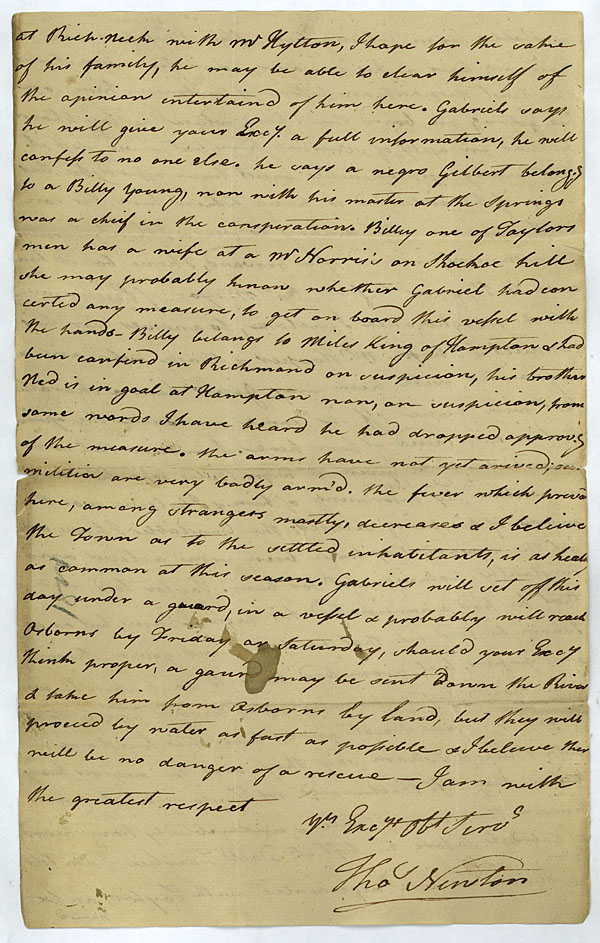 at Rich-neck with Mr Hylton, I hope for the sake
of his family, he may be able to clear himself of
the opinion entertaind of him here. Gabriels says
he will give your Excy. a full information, he will
confess to no one else. he says a negro Gilbert belongg
to a Billy Young, now with his master at the springs
was a cheif in the consperation. Billy one of Taylors
men has a wife at a Mr Norris's on Shockoe hill
she may probably know whether Gabriel had con
certed any measure, to get on board this vessel with
the hands - Billy belongs to Miles King of Hampton & had
been confind in Richmond on suspicion, his brother
Ned is in goal at Hampton now, on suspicion, from
some words I have heard he had dropped approvg
of the measure. the arms have not yet arived, our
militia are very badly arm'd. the fever which preva
here, among strangers mostly, decreases & I believe
the Town as to the settled inhabitants, is as heal
as common at this season. Gabriels will set off this
day under a guard, in a vessel & probably will reach
Osborns by Friday or Saturday, should your Excy
think proper, a gaurd may be sent down the River
& take him from Osborns by land, but they will
proceed by water as fast as possible & I believe ther
will be no danger of a rescue — I am with
the greatest respect
Yr Excys Obt Servt
Thos Newton